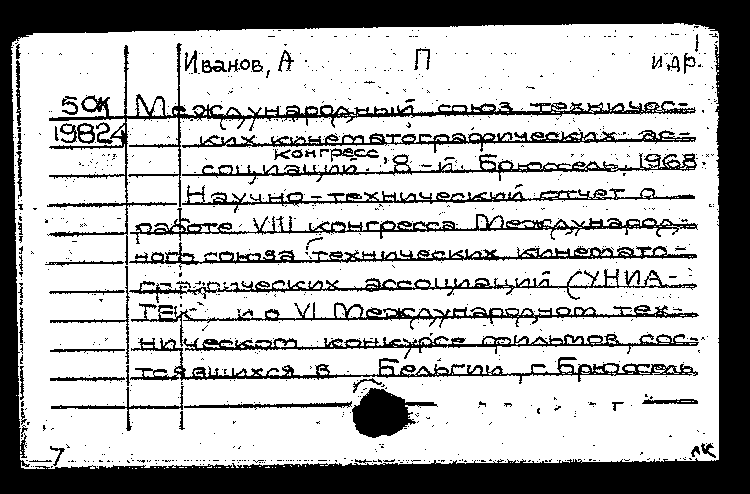 Иванов, А П и др.
5 ОК Международный союз техничес-
19824 ких кинематографических ас-
социаций. Конгресс, 8-й. Брюссель, 1968
Научно-технический отчет о
работе VIII конгресса Международ-
ного союза технических кинемато-
графических ассоциаций (УНИА-
ТЕК) и о VI Международном тех-
ническом конкурсе фильмов, сос-
тоявшихся в Бельгии, г. Брюссель
7 лк